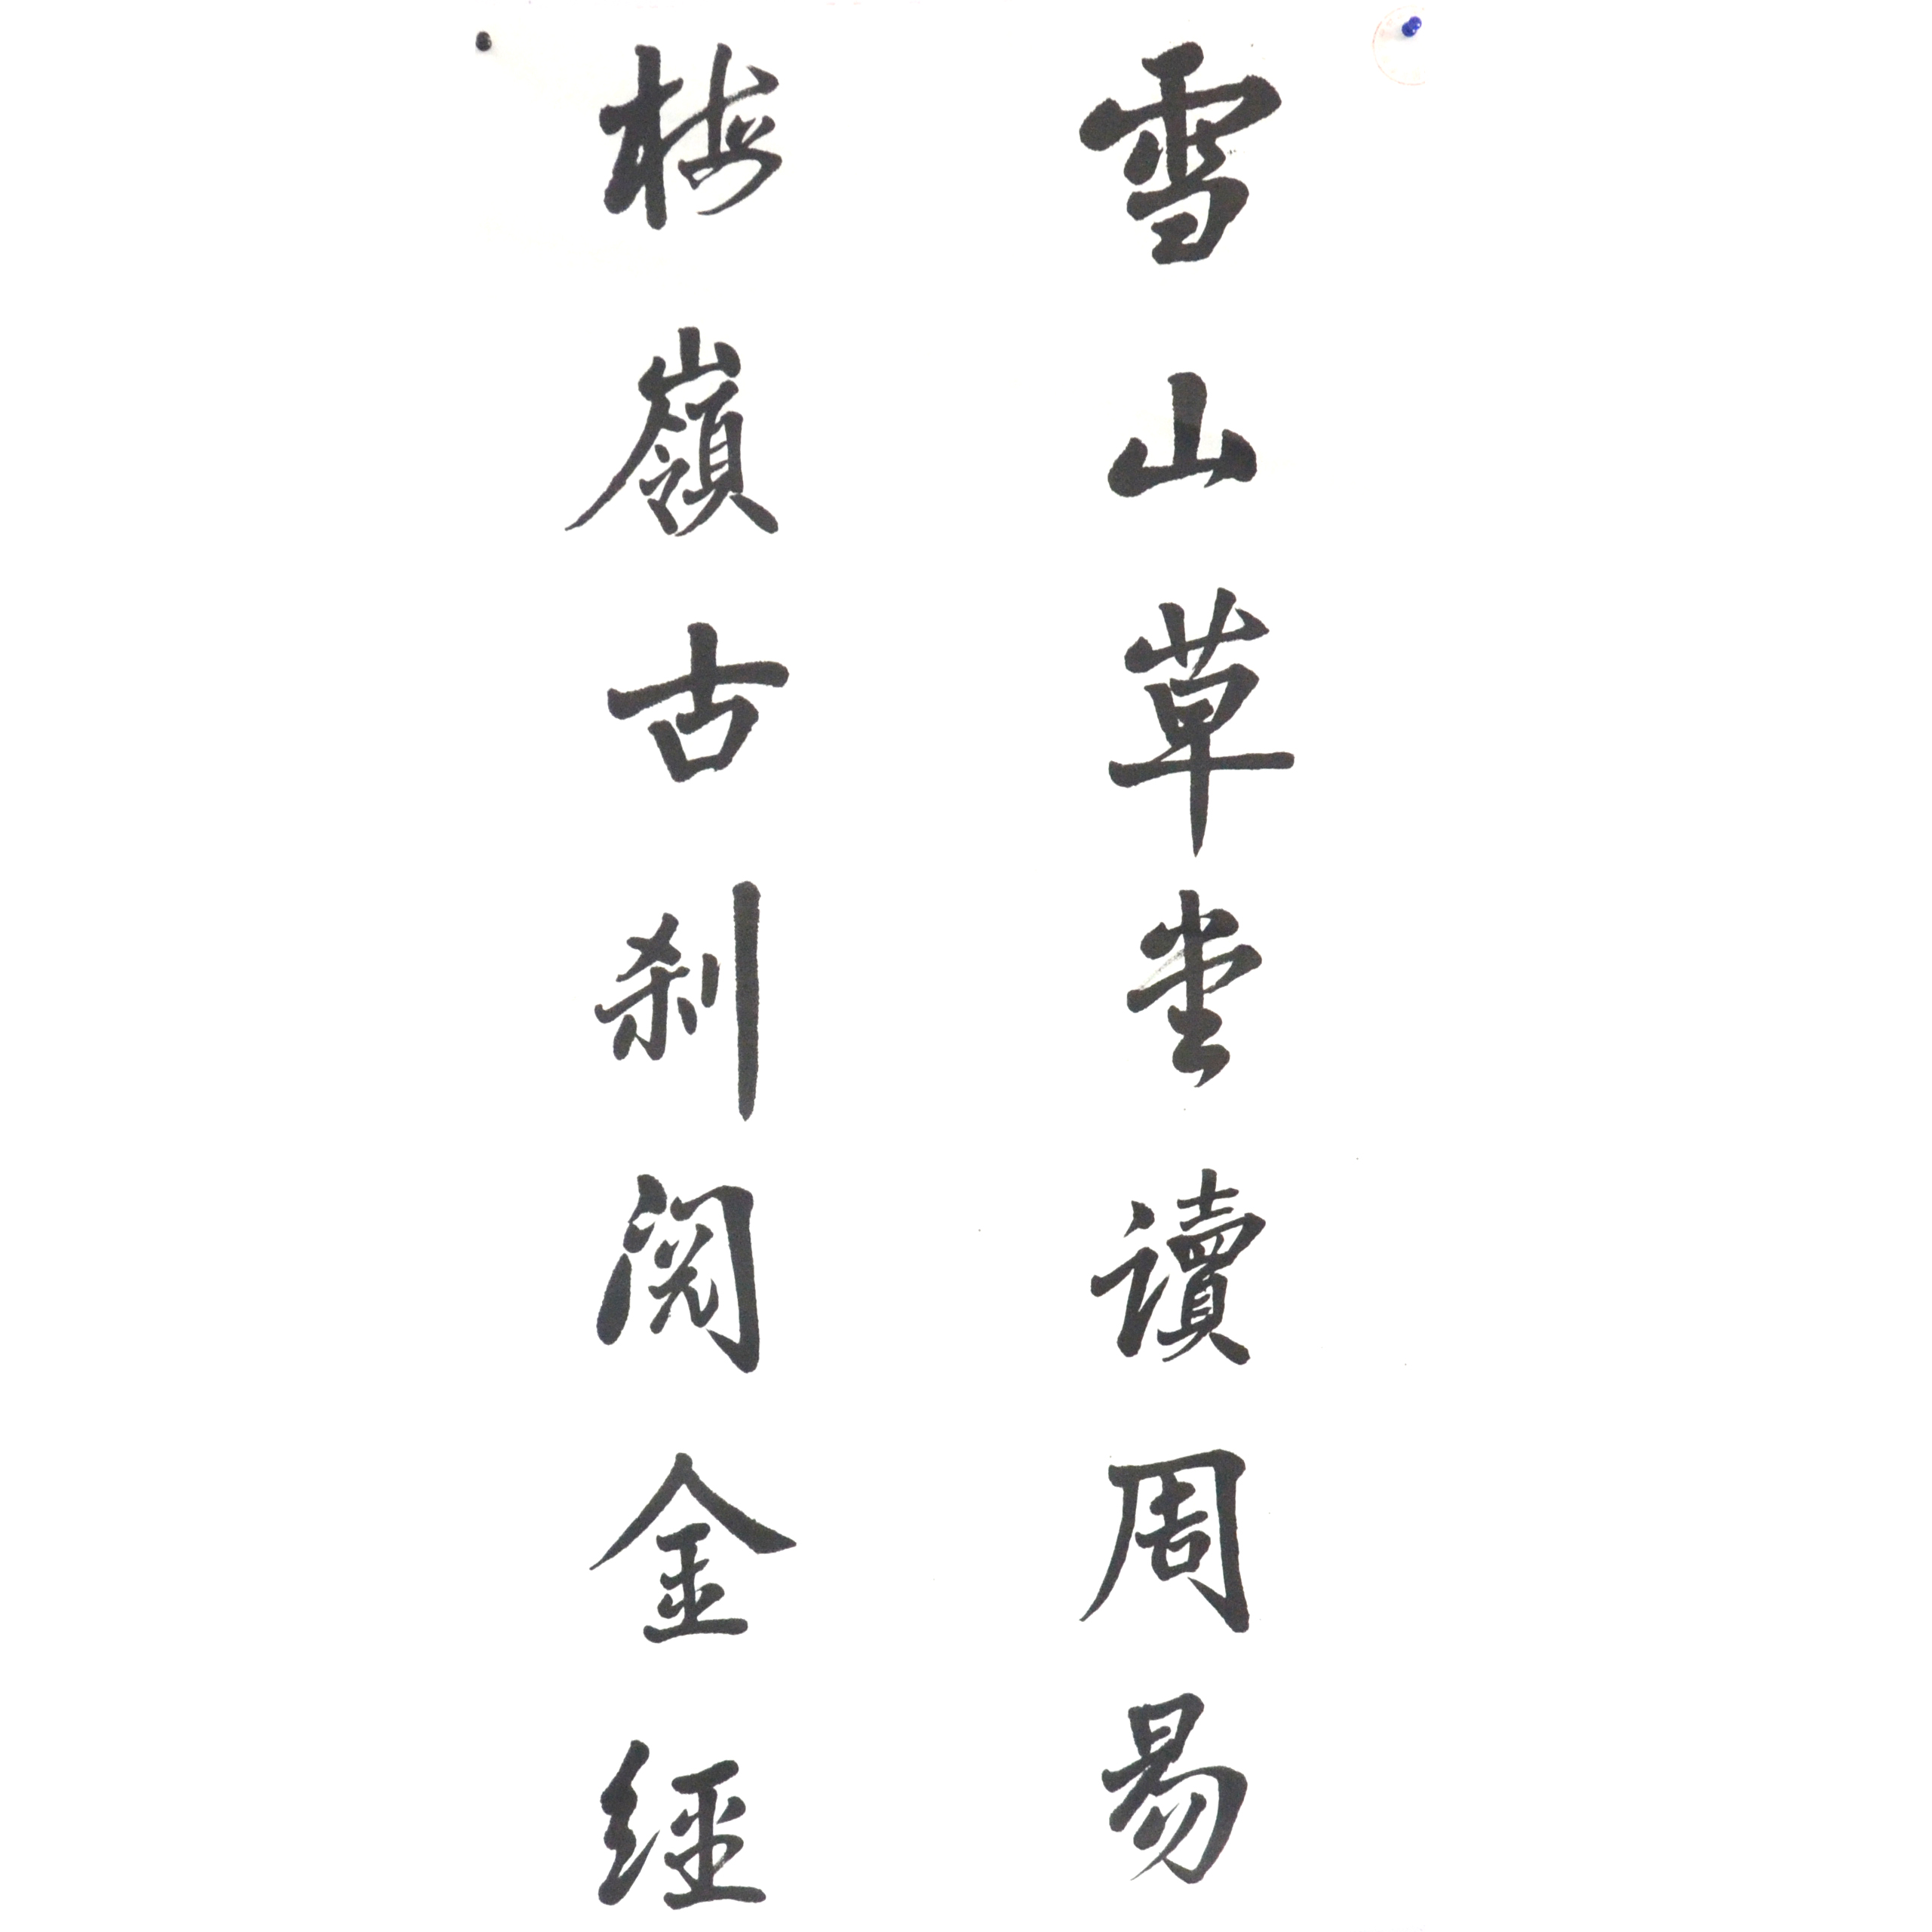 雪山草堂讀周易
梅嶺古刹閱金經